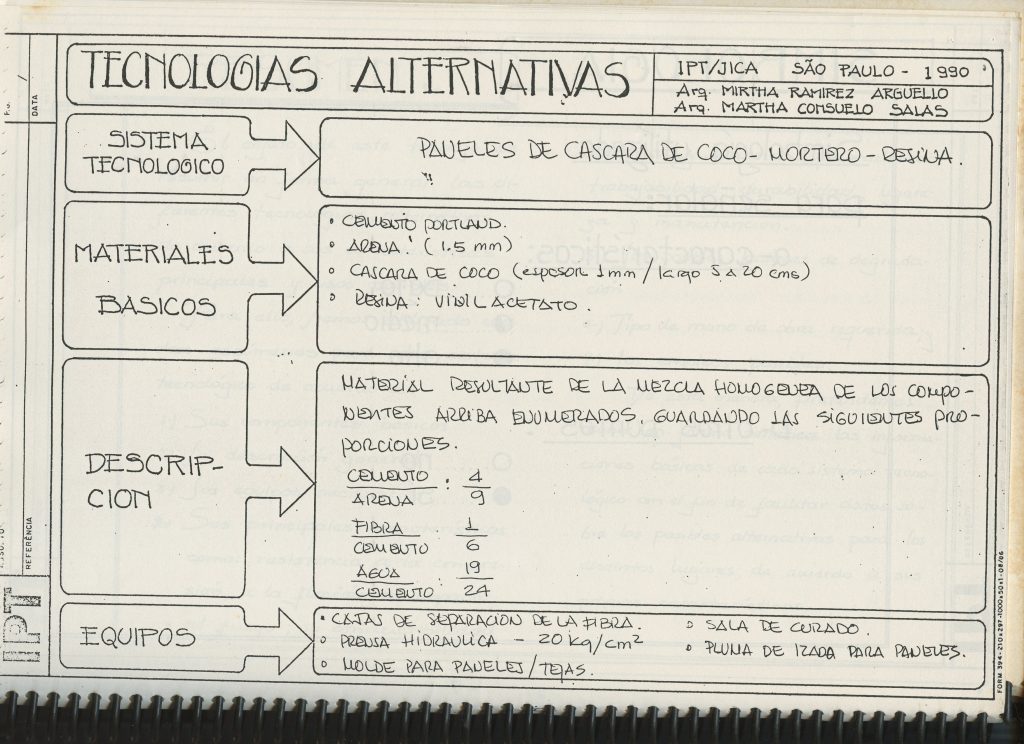 TECNOLOGIAS ALTERNATIVAS
IPT/JICA SÃO PAULO - 1990
Arq. MIRTHA RAMIREZ ARGUELLO
Arq. MARTHA CONSUELO SALAS
SISTEMA
TECNOLOGICO
PANELES DE CASCARA DE COCO - MORTERO - RESINA.
MATERIALES
BASICOS
• CEMENTO PORTLAND.
• ARENA: (1.5 mm)
• CASCARA DE COCO (espesor 1mm / largo 5 a 20 cms)
• RESINA: VINIL ACETATO.
DESCRIP-
CION
MATERIAL RESULTANTE DE LA MEZCLA HOMOGENEA DE LOS COMPO-
NENTES ARRIBA ENUMERADOS, GUARDANDO LAS SIGUIENTES PRO-
PORCIONES.
CEMENTO : 4
ARENA 9
FIBRA 1
CEMENTO 6
AGUA 19
CEMENTO 24
EQUIPOS
• CAJAS DE SEPARACION DE LA FIBRA.
• PRENSA HIDRAULICA - 20 kg/cm²
• MOLDE PARA PANELES/TEJAS.
• SALA DE CURADO.
• PLUMA DE IZADA PARA PANELES.
DATA
REFERÊNCIA
IPT
FORM 394-210x297-1000x50x1-08/86